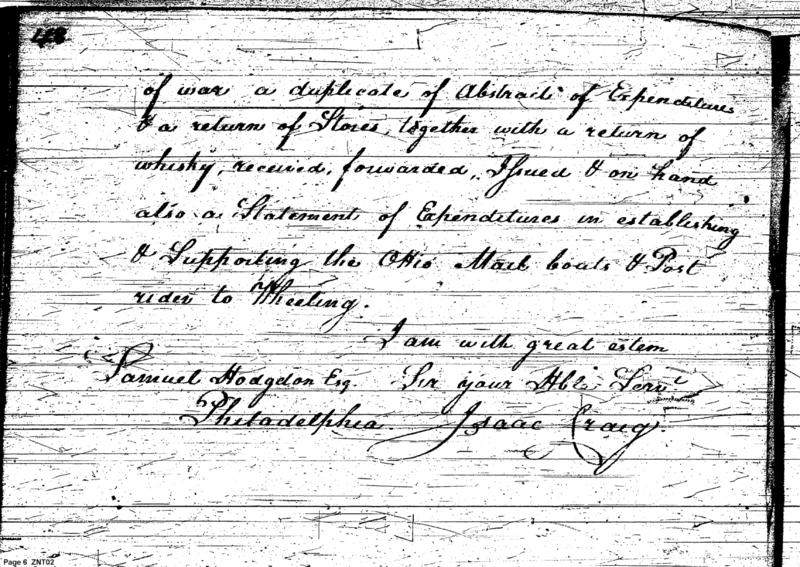 of war a duplicate of Abstract of Expenditures
& a return of Stores, together with a return of
whisky, received, forwarded, Issued & on hand
also a Statement of Expenditures in establishing
& Supporting the Ohio Mail boats & Post
rider to Wheeling.
I am with great estem
Samuel Hodgdon Esq. Sir your Hble Servt
Philadelphia. Isaac Craig
Page 6 ZNT02